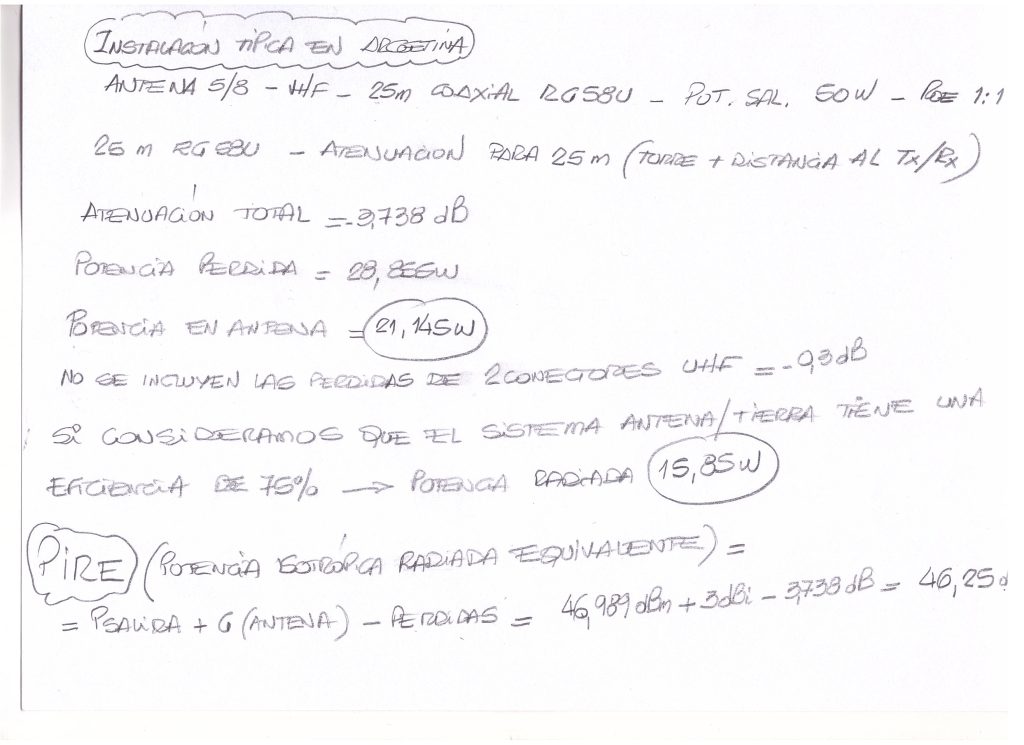 INSTALACION TÍPICA EN ARGETINA
ANTENA 5/8 - VHF - 25m COAXIAL RG58U - POT. SAL. 50W - ROE 1:1
25 m RG58U - ATENUACION PARA 25m (TORRE + DISTANCIA AL TX/RX)
ATENUACIÓN TOTAL = -3,738 dB
POTENCIA PERDIDA = 28,855W
POTENCIA EN ANTENA = 21,145W
NO SE INCLUYEN LAS PERDIDAS DE 2 CONECTORES UHF = -0,3dB
SI CONSIDERAMOS QUE EL SISTEMA ANTENA/TIERRA TIENE UNA
EFICIENCIA DE 75% → POTENCIA RADIADA 15,85W
PIRE (POTENCIA ISOTRÓPICA RADIADA EQUIVALENTE) =
= PSALIDA + G (ANTENA) - PERDIDAS = 46,989 dBm + 3dBi - 3,738 dB = 46,25 d